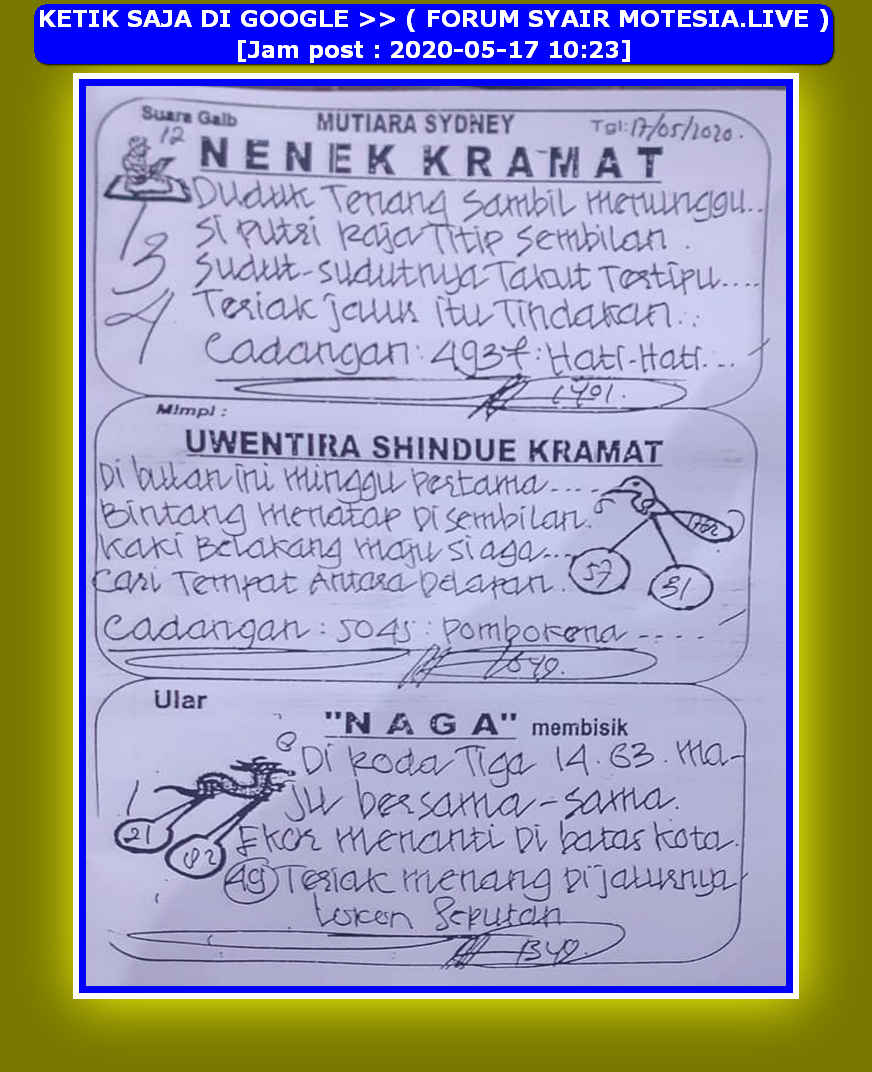 KETIK SAJA DI GOOGLE >> ( FORUM SYAIR MOTESIA.LIVE )
[Jam post : 2020-05-17 10:23]
Suara Gaib
MUTIARA SYDNEY
Tgl: 17/05/2020.
12
NENEK KRAMAT
Duduk Tenang Sambil menunggu..
Si Putri Raja Titip Sembilan .
Sudut-sudutnya Takut Tertipu....
Teriak jauh itu Tindakan...
Cadangan : 4937 : Hati-Hati....
1
3
4
Mimpi :
UWENTIRA SHINDUE KRAMAT
Di bulan ini minggu pertama....
Bintang menatap Di sembilan.
Kaki Belakang maju siaga...
Cari Tempat Antara Delapan.
57
31
Cadangan : 5045 : Pombokena ----
Ular
"NAGA" membisik
Di Roda Tiga 14. 63. ma-
ju bersama-sama.
21
Ekor menanti Di batas Kota.
49 Teriak menang Dijalurnya
Seputan
1349.